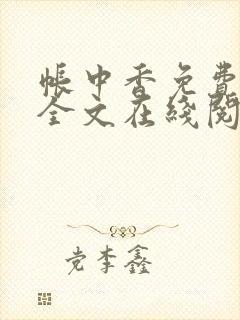 帐中香免费
全文在线阅
党李鑫